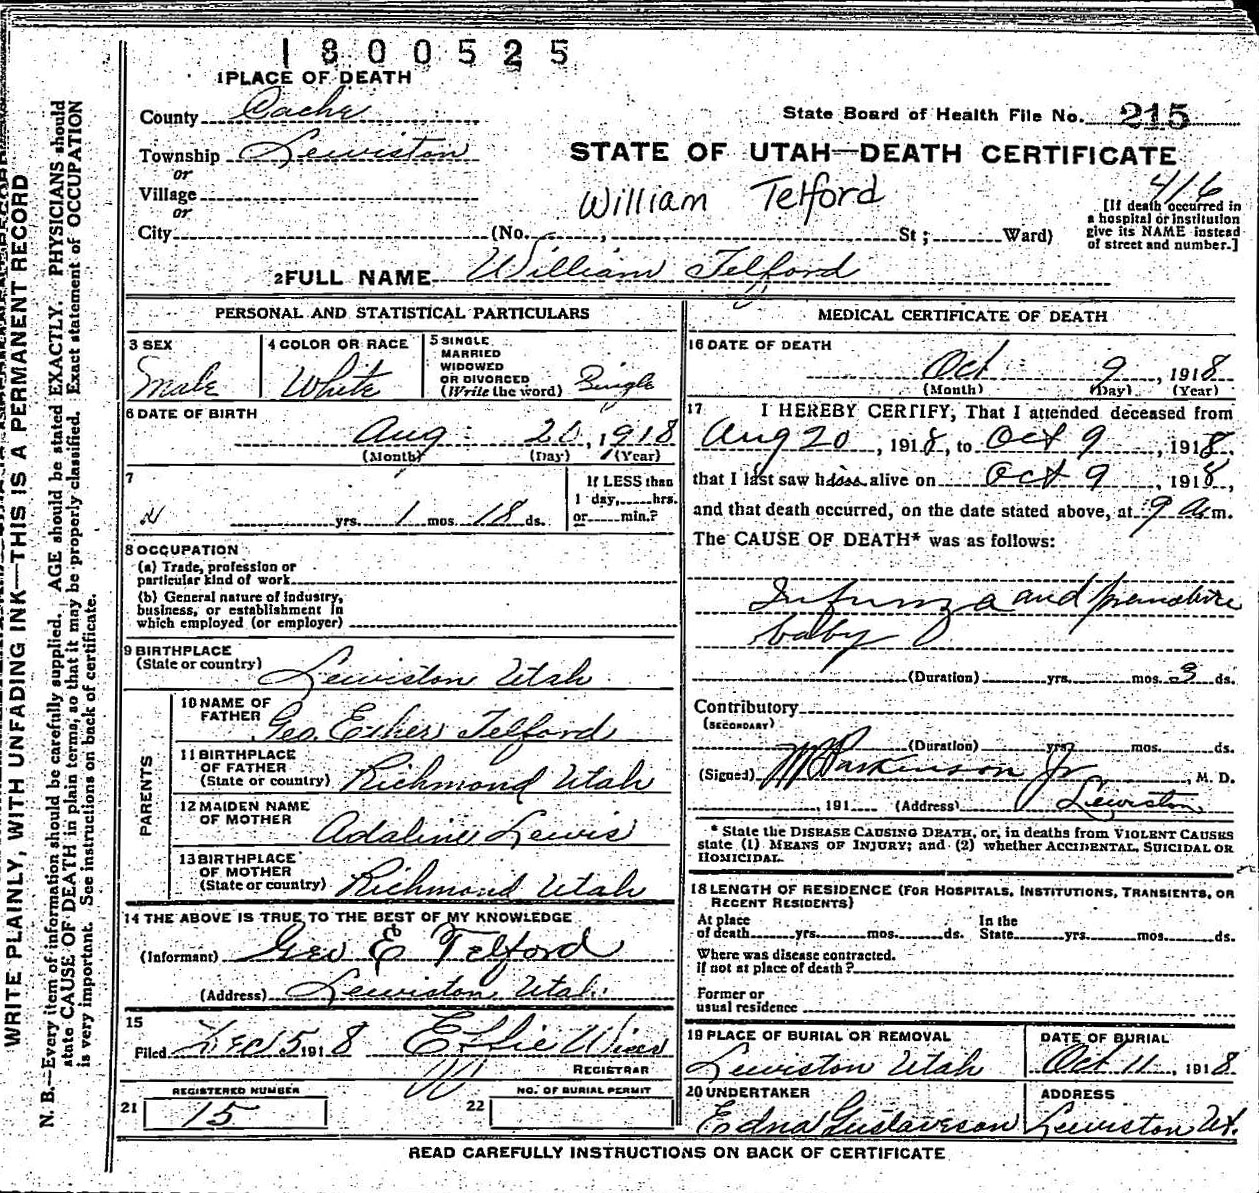 1800525
1 PLACE OF DEATH
County Cache
State Board of Health File No. 215
Township Lewiston
or
STATE OF UTAH—DEATH CERTIFICATE
Village
or
William Telford
416
[If death occurred in
a hospital or institution
give its NAME instead
of street and number.]
City (No. , St; Ward)
2 FULL NAME William Telford
PERSONAL AND STATISTICAL PARTICULARS
3 SEX
Male
4 COLOR OR RACE
White
5 SINGLE
MARRIED
WIDOWED
OR DIVORCED
(Write the word) Single
6 DATE OF BIRTH
Aug 20, 1918
(Month) (Day) (Year)
7
yrs. 1 mos. 18 ds.
If LESS than
1 day, hrs.
or min.?
8 OCCUPATION
(a) Trade, profession or
particular kind of work
(b) General nature of industry,
business, or establishment in
which employed (or employer)
9 BIRTHPLACE
(State or country) Lewiston Utah
PARENTS
10 NAME OF
FATHER Geo. Telford
11 BIRTHPLACE
OF FATHER
(State or country) Richmond Utah
12 MAIDEN NAME
OF MOTHER Adaline Lewis
13 BIRTHPLACE
OF MOTHER
(State or country) Richmond Utah
14 THE ABOVE IS TRUE TO THE BEST OF MY KNOWLEDGE
(Informant) Geo E Telford
(Address) Lewiston Utah.
15
Filed Dec 15 1918 Effie
REGISTRAR
REGISTERED NUMBER
21 15
NO. OF BURIAL PERMIT
22
MEDICAL CERTIFICATE OF DEATH
16 DATE OF DEATH
Oct 9, 1918
(Month) (Day) (Year)
17 I HEREBY CERTIFY, That I attended deceased from
Aug 20, 1918, to Oct 9, 1918,
that I last saw him alive on Oct 9, 1918,
and that death occurred, on the date stated above, at 9 A.m.
The CAUSE OF DEATH* was as follows:
Infunza and premature
baby
(Duration) yrs. mos. 3 ds.
Contributory
(SECONDARY)
(Duration) yrs. mos. ds.
(Signed) Parkinson Jr, M. D.
, 191 (Address) Lewiston
* State the DISEASE CAUSING DEATH, or, in deaths from VIOLENT CAUSES
state (1) MEANS OF INJURY; and (2) whether ACCIDENTAL, SUICIDAL OR
HOMICIDAL.
18 LENGTH OF RESIDENCE (FOR HOSPITALS, INSTITUTIONS, TRANSIENTS, OR
RECENT RESIDENTS)
At place
of death yrs. mos. ds.
In the
State yrs. mos. ds.
Where was disease contracted.
if not at place of death?
Former or
usual residence
19 PLACE OF BURIAL OR REMOVAL
Lewiston Utah
DATE OF BURIAL
Oct 11, 1918
20 UNDERTAKER
Edna Gustaveson
ADDRESS
Lewiston Ut.
READ CAREFULLY INSTRUCTIONS ON BACK OF CERTIFICATE
WRITE PLAINLY, WITH UNFADING INK—THIS IS A PERMANENT RECORD
N. B.—Every item of information should be carefully supplied. AGE should be stated EXACTLY. PHYSICIANS should
state CAUSE OF DEATH in plain terms, so that it may be properly classified. Exact statement of OCCUPATION
is very important. See instructions on back of certificate.